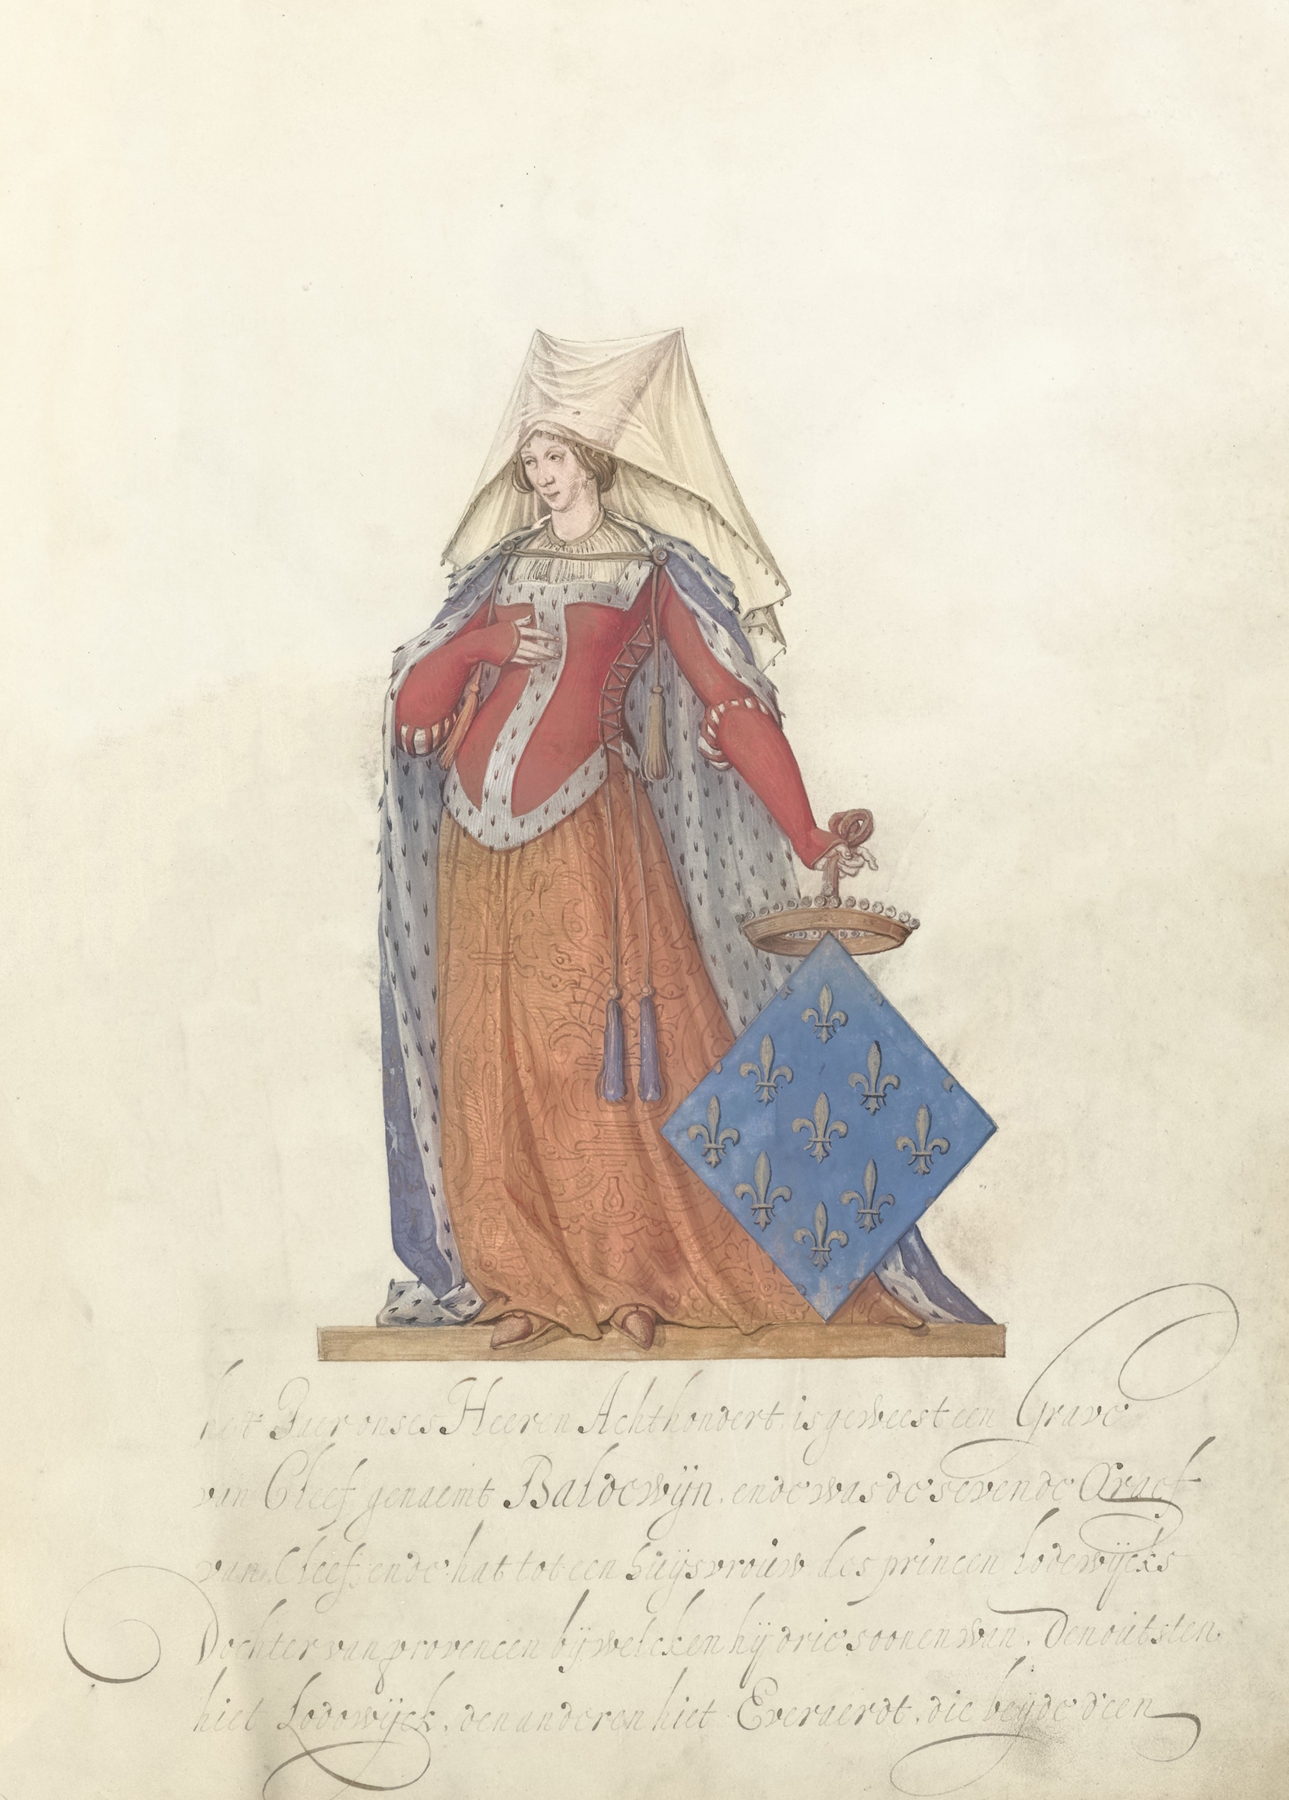 het Jaer onses Heeren Achthondert. is geweest een Grave
van Cleef genaemt Baldewijn. ende was de sevende Graef
van Cleef. ende hat tot een huijsvrouw des princen Lodewijcks
Dochter van provencen bij welcken hij drie soonen wan. Den outsten
hiet Lodowijck. den anderen hiet Everaerdt. die beyde deen